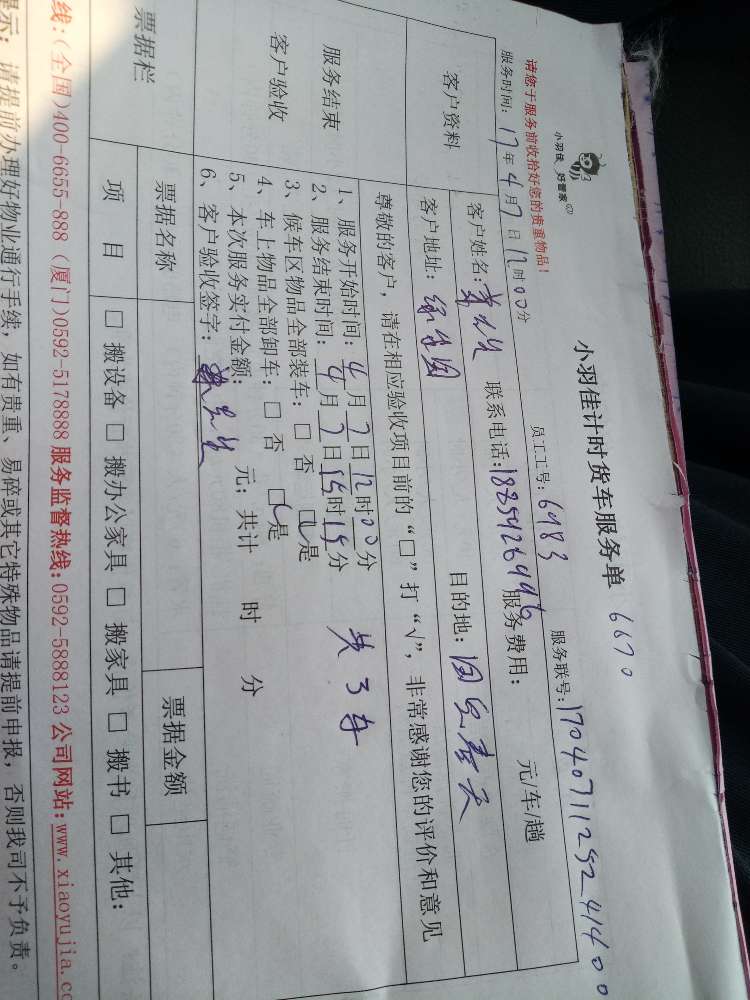 小羽佳 好管家
小羽佳计时货车服务单 6670
请您于服务前收拾好您的贵重物品！
员工工号：6983 服务联号：1704071129241400
服务时间：17年4月7日12时00分
客户资料
客户姓名： 联系电话：18859269996 服务费用： 元/车/趟
客户地址： 目的地：国贸春天
服务结束
客户验收
尊敬的客户，请在相应验收项目前的“□”打“√”，非常感谢您的评价和意见
1、服务开始时间：4月7日12时00分
2、服务结束时间：4月7日15时15分
3、候车区物品全部装车：□否 ☑是
4、车上物品全部卸车：□否 ☑是
5、本次服务实付金额： 元；共计 时 分
6、客户验收签字：
票据栏
票据名称 票据金额
项 目
□搬设备 □搬办公家具 □搬家具 □搬书 □其他：
线：(全国)400-6655-888 (厦门)0592-5178888 服务监督热线:0592-5888123 公司网站:www.xiaoyujia.co
示：请提前办理好物业通行手续，如有贵重、易碎或其它特殊物品请提前申报，否则我司不予负责。